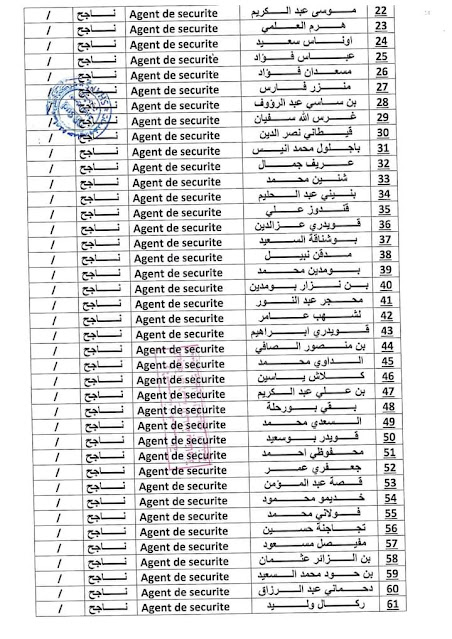 22 موسى عبد الكريم Agent de securite ناجح /
23 هرم العلمي Agent de securite ناجح /
24 اوناس سعيد Agent de securite ناجح /
25 عباس فؤاد Agent de securite ناجح /
26 مسعدان فؤاد Agent de securite ناجح /
27 منزر فارس Agent de securite ناجح /
28 بن ساسي عبد الرؤوف Agent de securite ناجح /
29 غرس الله سفيان Agent de securite ناجح /
30 قيطاني نصر الدين Agent de securite ناجح /
31 باجلول محمد انيس Agent de securite ناجح /
32 عريف جمال Agent de securite ناجح /
33 شنين محمد Agent de securite ناجح /
34 بنيني عبد الحليم Agent de securite ناجح /
35 قندوز علي Agent de securite ناجح /
36 قويدري عزالدين Agent de securite ناجح /
37 بوشناقة السعيد Agent de securite ناجح /
38 مدقن نبيل Agent de securite ناجح /
39 بومدين محمد Agent de securite ناجح /
40 بن نزار بومدين Agent de securite ناجح /
41 محجر عبد النور Agent de securite ناجح /
42 لشهب عامر Agent de securite ناجح /
43 قويدري ابراهيم Agent de securite ناجح /
44 بن منصور الصافي Agent de securite ناجح /
45 الداوي محمد Agent de securite ناجح /
46 كلاش ياسين Agent de securite ناجح /
47 بن علي عبد الكريم Agent de securite ناجح /
48 بقي بورحلة Agent de securite ناجح /
49 السعدي محمد Agent de securite ناجح /
50 قويدر بوسعيد Agent de securite ناجح /
51 محفوظي احمد Agent de securite ناجح /
52 جعفري عمر Agent de securite ناجح /
53 قصة عبد المؤمن Agent de securite ناجح /
54 خديمو محمود Agent de securite ناجح /
55 فولاني محمد Agent de securite ناجح /
56 تجاجنة حسين Agent de securite ناجح /
57 مفيصل مسعود Agent de securite ناجح /
58 بن الزائر عثمان Agent de securite ناجح /
59 بن حود محمد السعيد Agent de securite ناجح /
60 دحماني عبد الرزاق Agent de securite ناجح /
61 ركال وليد Agent de securite ناجح /